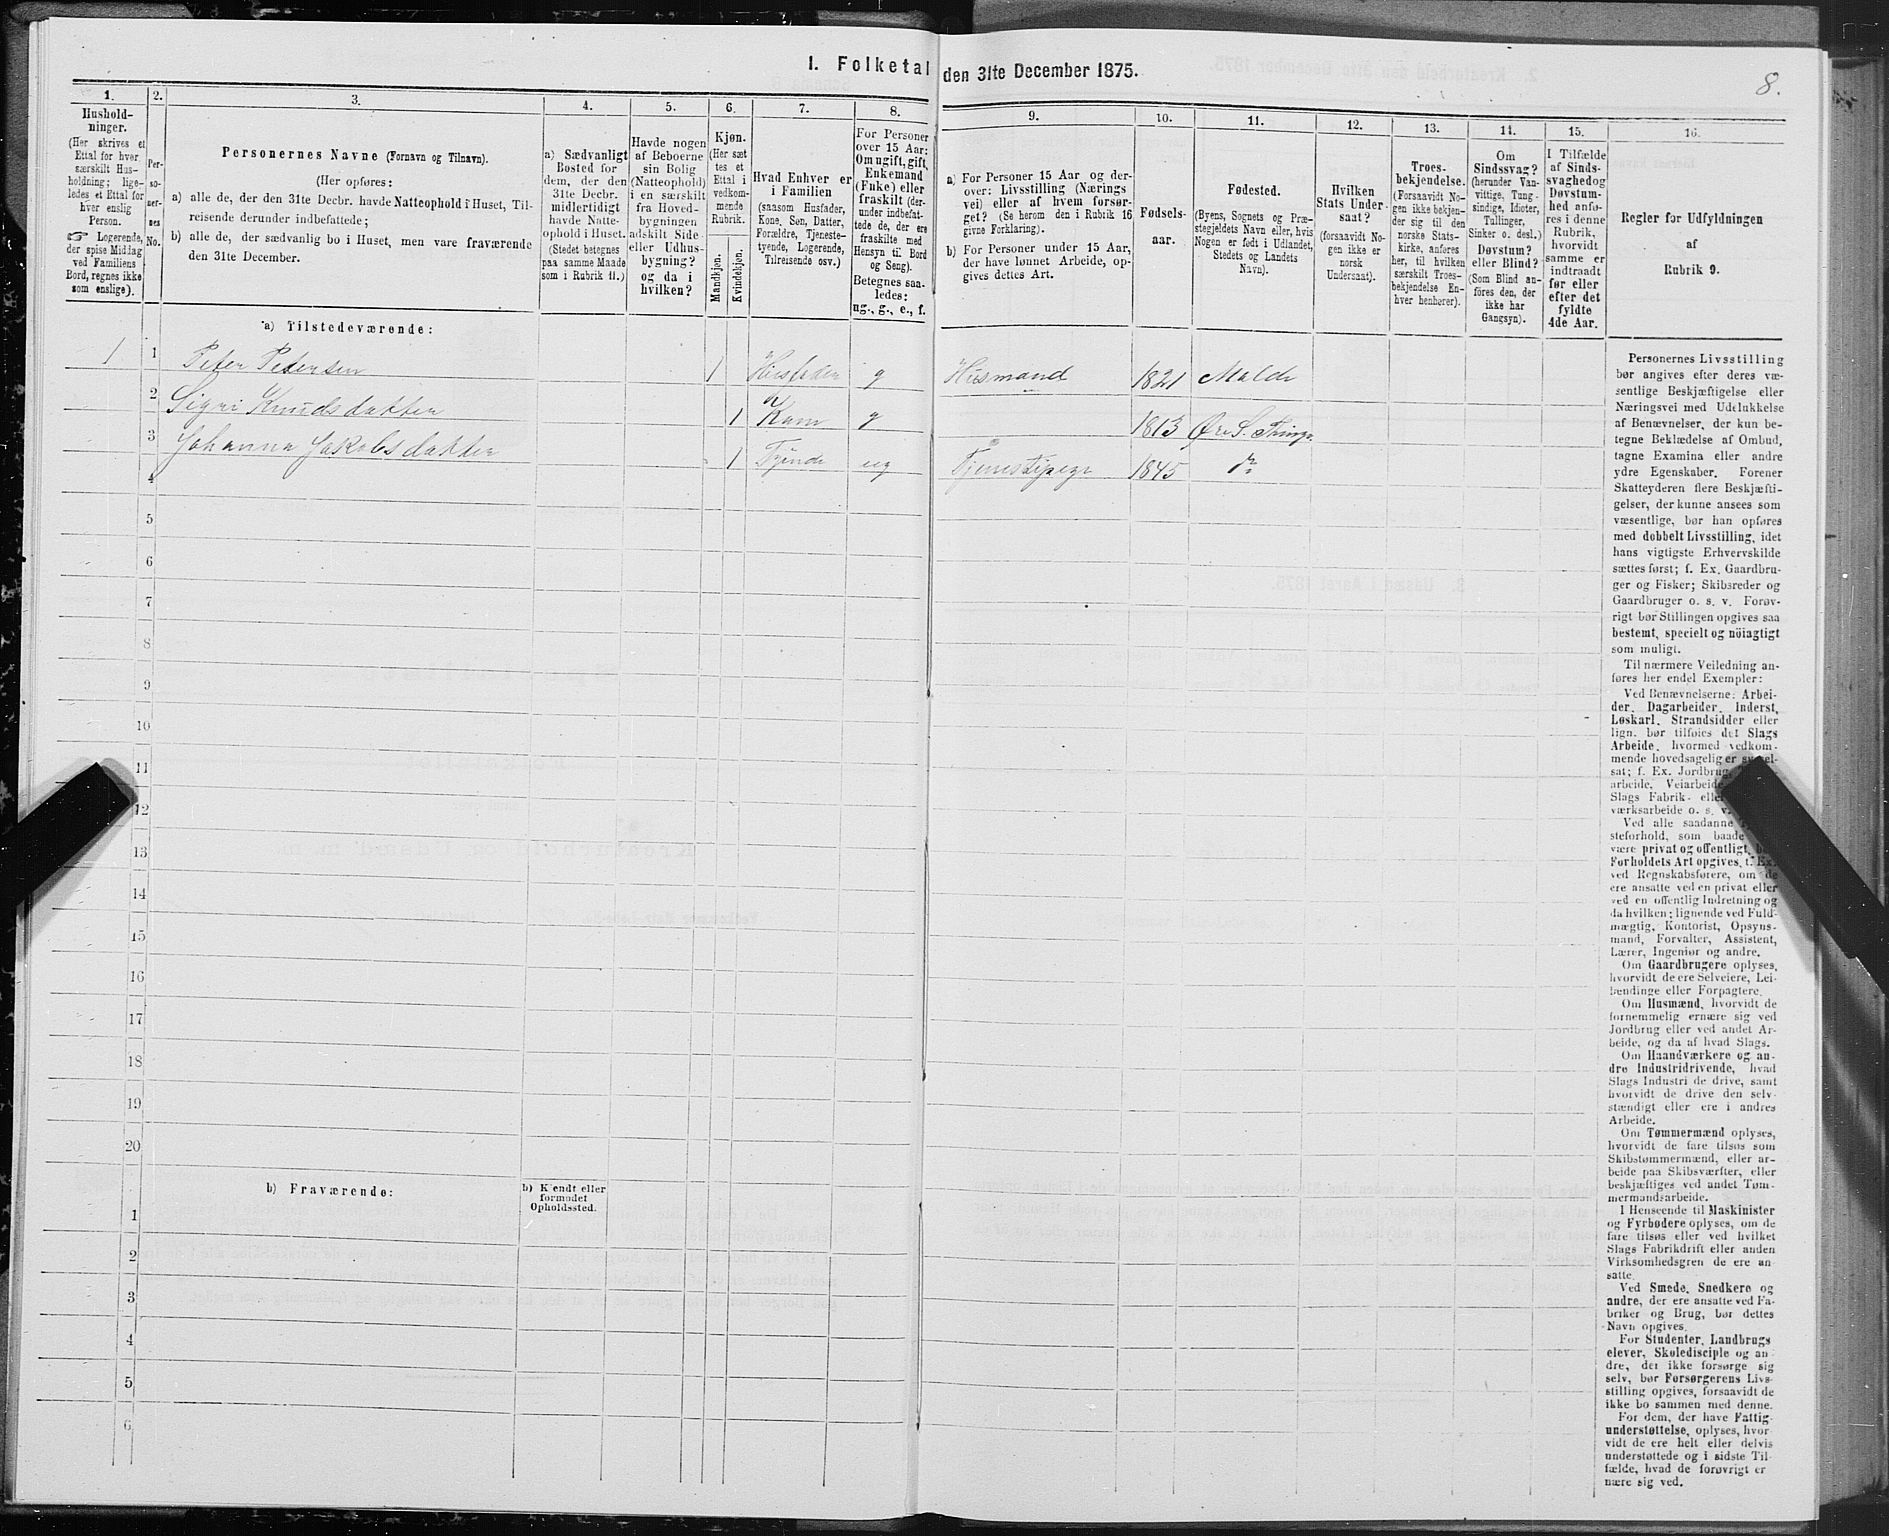 1. Folketal den 31te December 1875.
8.
1.
Hushold-
ninger.
(Her skrives et
Ettal for hver
særskilt Hus-
holdning; lige-
ledes et Ettal for
hver enslig
Person.
☞ Logerende,
der spise Middag
ved Familiens
Bord, regnes ikke
som enslige).
2.
Per-
so-
ner-
nes
No.
3.
Personernes Navne (Fornavn og Tilnavn).
(Her opføres:
a) alle de, der den 31te Decbr. havde Natteophold i Huset, Til-
reisende derunder indbefattede;
b) alle de, der sædvanlig bo i Huset, men vare fraværende
den 31te December.
4.
a) Sædvanligt
Bosted for
dem, der den
31te Decbr.
midlertidigt
havde Natte-
ophold i Huset.
(Stedet betegnes
paa samme Maade
som i Rubrik 11.)
5.
Havde nogen
af Beboerne
sin Bolig
(Natteophold)
i en særskilt
fra Hoved-
bygningen
adskilt Side-
eller Udhus-
bygning?
og da i
hvilken?
6.
Kjøn.
(Her sæt
tes et
Ettal i
vedkom-
mende
Rubrik.
Mandkjøn.
Kvindekjøn.
7.
Hvad Enhver er
i Familien
(saasom Husfader,
Kone, Søn, Datter,
Forældre, Tjeneste-
tyende, Logerende,
Tilreisende osv.)
8.
For Personer
over 15 Aar:
Om ugift, gift,
Enkemand
(Enke) eller
fraskilt (der-
under indbefat-
tede de, der ere
fraskilte med
Hensyn til Bord
og Seng).
Betegnes saa-
ledes:
ug., g., e., f.
9.
a) For Personer 15 Aar og der-
over: Livsstilling (Nærings
vei) eller af hvem forsør-
get? (Se herom den i Rubrik 16
givne Forklaring).
b) For Personer under 15 Aar,
der have lønnet Arbeide, op-
gives dettes Art.
10.
Fødsels-
aar.
11.
Fødested.
(Byens, Sognets og Præ-
stegjeldets Navn eller, hvis
Nogen er født i Udlandet,
Stedets og Landets
Navn).
12.
Hvilken
Stats Under
saat?
(forsaavidt No-
gen ikke er
norsk
Undersaat).
13.
Troes-
bekjendelse.
(Forsaavidt No-
gen ikke bekjen-
der sig til den
norske Stats-
kirke, anføres
her, til hvilken
særskilt Troes-
bekjendelse En-
hver henhører).
14.
Om
Sindssvag?
(herunder Van-
vittige, Tung-
sindige, Idioter,
Tullinger,
Sinker o. desl.)
Døvstum?
eller Blind?
(Som Blind an-
føres den, der
ikke har
Gangsyn).
15.
I Tilfælde
af Sinds-
svaghed og
Døvstum-
hed anfø-
res i denne
Rubrik,
hvorvidt
samme er
indtraadt
før eller
efter det
fyldte
4de Aar.
16.
Regler for Udfyldningen
af
Rubrik 9.
a) Tilstedeværende:
1 1 Peter Petersen 1 Husfader g Husmand 1821 Molde
2 Sigri Knudsdatter 1 Kone g 1813 Øre S.
3 Johanna Jakobsdatter 1 ug 1845 do
4
5
6
7
8
9
10
11
12
13
14
15
16
17
18
19
20
b) Fraværende:
b) Kjendt eller
formodet
Opholdssted.
1
2
3
4
5
6
Personernes Livsstilling
bør angives efter deres væ-
sentlige Beskjæftigelse eller
Næringsvei med Udelukkelse
af Benævnelser, der kun be-
tegne Beklædelse af Ombud,
tagne Examina eller andre
ydre Egenskaber. Forener
Skatteyderen flere Beskjæfti-
gelser, der kunne ansees som
væsentlige, bør han opføres
med dobbelt Livsstilling, idet
hans vigtigste Erhvervskilde
sættes først; f. Ex. Gaardbru-
ger og Fisker; Skibsreder og
Gaardbruger o. s. v. Forøv-
rigt bør Stillingen opgives saa
bestemt, specielt og nøiagtigt
som muligt.
Til nærmere Veiledning an-
føres her endel Exempler:
Ved Benævnelserne: Arbei-
der, Dagarbeider, Inderst,
Løskarl, Strandsidder eller
lign. bør tilføies det Slags
Arbeide, hvormed vedkom-
mende hovedsagelig er syssel-
sat; f. Ex. Jordbrug,
arbeide, Veiarbeide,
Slags Fabrik- eller
værksarbeide o. s. v.
Ved alle saadanne
steforhold, som baade
være privat og offentligt, bør
Forholdets Art opgives, f. Ex.
ved Regnskabsførere, om de
ere ansatte ved en privat eller
ved en offentlig Indretning og
da hvilken; lignende ved Fuld-
mægtig, Kontorist, Opsyns-
mand, Forvalter, Assistent,
Lærer, Ingeniør og andre.
Om Gaardbrugere oplyses,
hvorvidt de ere Selveiere, Lei-
lændinge eller Forpagtere.
Om Husmænd, hvorvidt de
fornemmelig ernære sig ved
Jordbrug eller ved andet Ar-
beide, og da af hvad Slags.
Om Haandværkere og an-
dre Industridrivende, hvad
Slags Industri de drive, samt
hvorvidt de drive den selv-
stændigt eller ere i andres
Arbeide.
Om Tømmermænd oplyses,
hvorvidt de fare tilsøs som
Skibstømmermænd, eller ar-
beide paa Skibsværfter, eller
beskjæftiges ved andet Tøm-
mermandsarbeide.
I Henseende til Maskinister
og Fyrbødere oplyses, om de
fare tilsøs eller ved hvilket
Slags Fabrikdrift eller anden
Virksomhedsgren de ere an-
satte.
Ved Smede, Snedkere og
andre, der ere ansatte ved Fa-
briker og Brug, bør dettes
Navn opgives.
For Studenter, Landbrugs
elever, Skoledisciple og an-
dre, der ikke forsørge sig
selv, bør Forsørgerens Livs-
stilling opgives, forsaavidt de
ikke bo sammen med denne.
For dem, der have Fattig-
understøttelse, oplyses, hvor-
vidt de ere helt eller delvis
understøttede og i sidste Til-
fælde, hvad de forøvrigt er
nære sig ved.